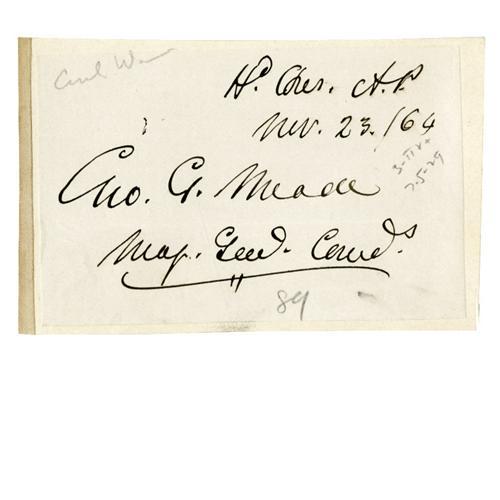 Civil War
Hd. Qrs. A.P.
Nov. 23. /64
Geo. G. Meade
Maj. Genl. Comd.s
89